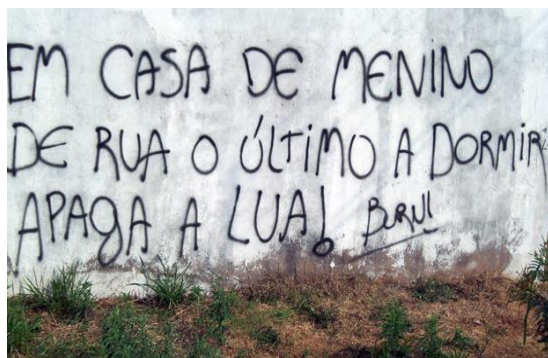 EM CASA DE MENINO
DE RUA O ÚLTIMO A DORMIR
APAGA A LUA!